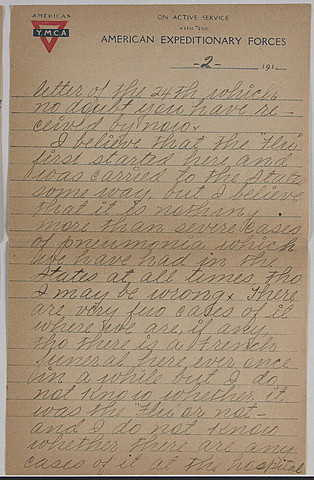 AMERICAN
YMCA
ON ACTIVE SERVICE
WITH THE
AMERICAN EXPEDITIONARY FORCES
-2- 191
letter of the 24th which
no doubt you have re-
ceived by now.
I believe that the "Flu"
first started here and
was carried to the States
some way, but I believe
that it is nothing
more than severe cases
of pneumonia which
we have had in the
States at all times, tho
I may be wrong. There
are very few cases of it
where we are, if any,
tho there is a French
funeral here ever once
in a while but I do
not know whether it
was the "Flu" or not-
and I do not know
whether there are any
cases of it at the hospital